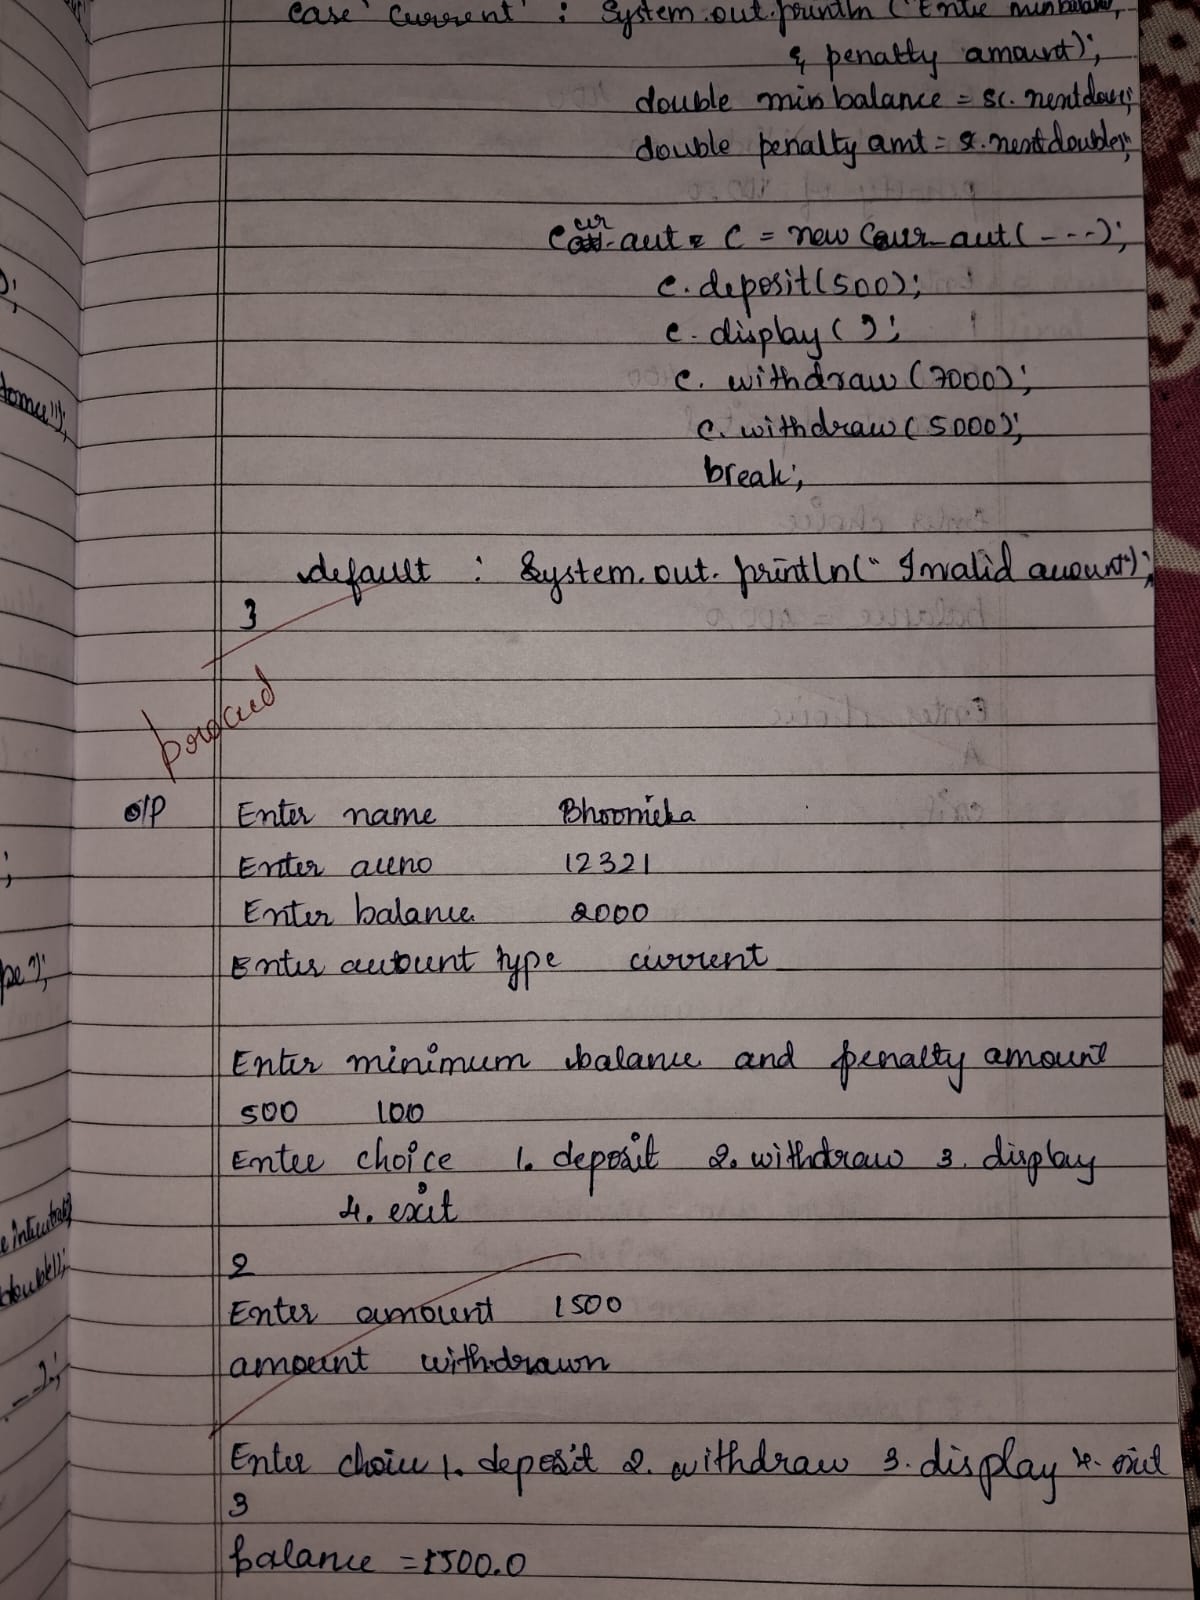 case 'current' : System.out.println ("Entre min balance,
& penalty amount);
double min balance = sc. nextdou;
double penalty amt = s. nextdouble;
cur
C - aut C = new Cour_aut ( - - -);
c. deposit (500);
c. display ( );
tomer");
c. withdraw (7000);
c. withdraw (5000);
break;
default : System. out. println(" Invalid account");
}
o/p Enter name Bhoomika
Enter accno 12321
Enter balance 2000
pe");
Enter account type current
Enter minimum balance and penalty amount
500 100
Enter choice 1. deposit 2. withdraw 3. display
4. exit
double();
2
Enter amount 1500
amount withdrawn
Enter choice 1. deposit 2. withdraw 3. display 4. exit
3
balance = 1500.0